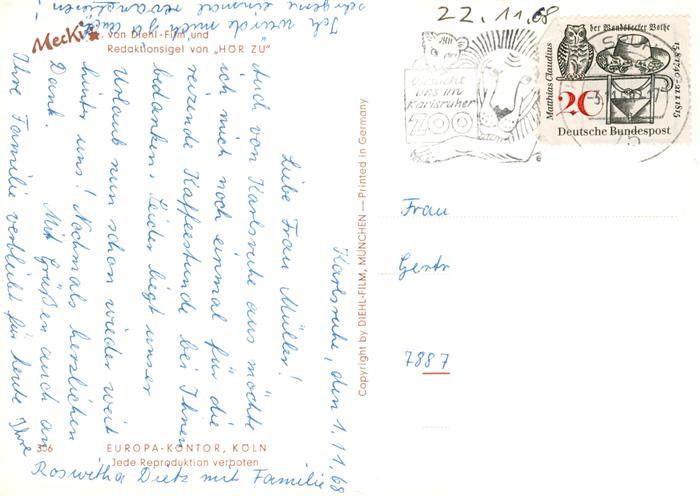 22.11.68
Mecki
von Diehl-Film und
Redaktionsigel von „HÖR ZU“
Karlsruhe, den 1.11.68
Liebe Frau Müller!
Auch von Karlsruhe aus möchte
ich mich noch einmal für die
reizende Kaffeestunde bei Ihnen
bedanken. Leider liegt unser
Urlaub nun schon wieder weit
hinter uns! Nochmals herzlichen
Dank. Mit Grüßen auch an
Ihre Familie verbleibt für heute Ihre
Roswitha Dietz mit Familie
Ich würde mich ja auch
sehr gerne einmal revanchieren
306
EUROPA-KONTOR, KÖLN
Jede Reproduktion verboten
Copyright by DIEHL-FILM, MÜNCHEN — Printed in Germany
Besucht
uns im
Karlsruher
ZOO
der Wandsbecker Bothe
Matthias Claudius
15.8.1740-21.1.1815
20
Deutsche Bundespost
Frau
Gertr
7887